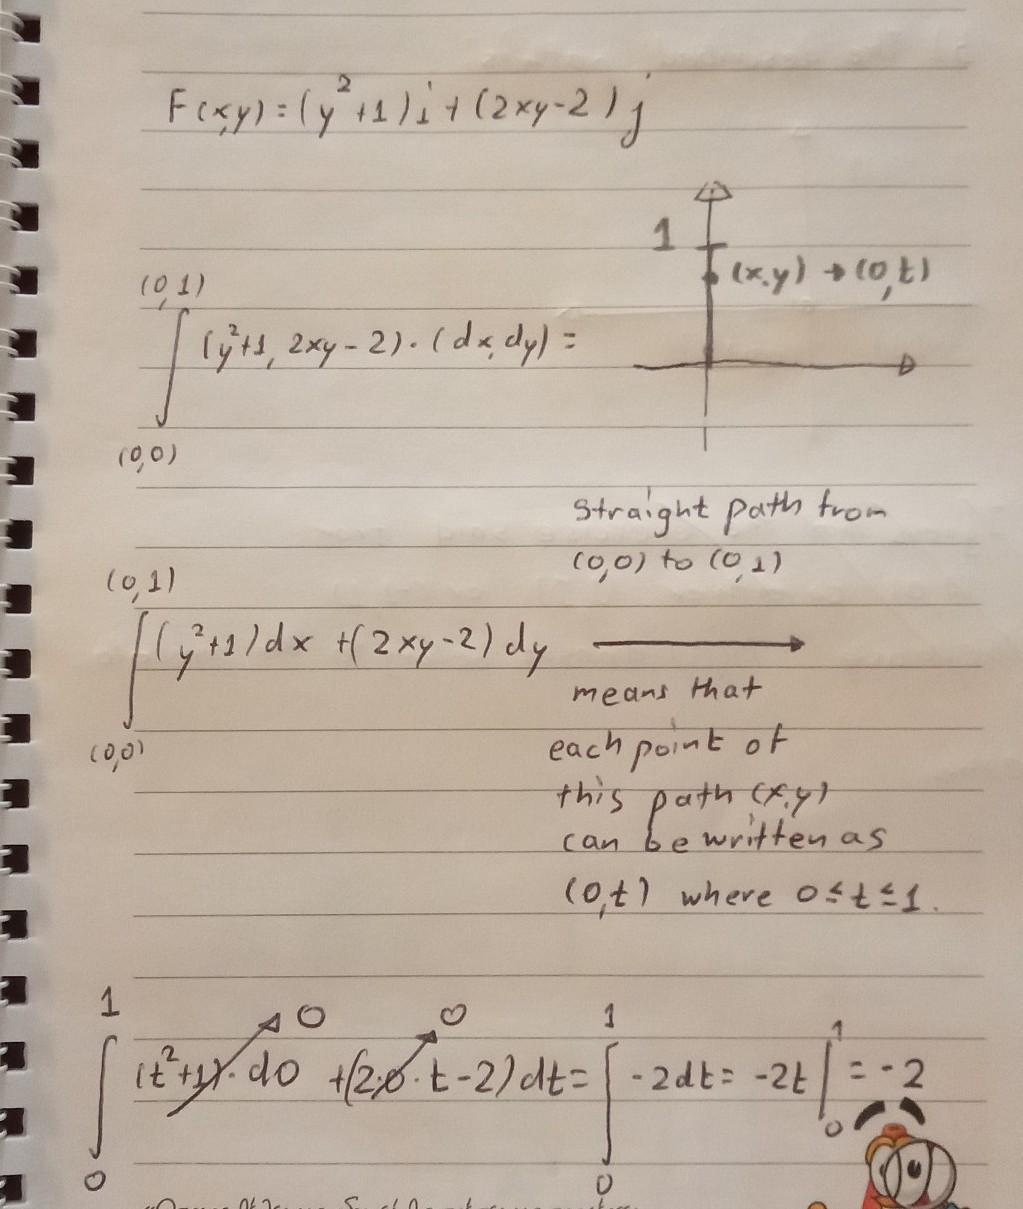 F(x,y) = (y²+1)i + (2xy-2)j
1
(x,y) → (0,t)
(0,1)
∫ (y²+1, 2xy-2)·(dx,dy) =
(0,0)
straight path from
(0,0) to (0,1)
(0,1)
∫ (y²+1)dx + (2xy-2)dy →
(0,0)
means that
each point of
this path (x,y)
can be written as
(0,t) where 0≤t≤1.
1 0 0 1 1
∫ (t²+1)·d0 + (2·0·t-2)dt = ∫ -2dt = -2t | = -2
0 0 0